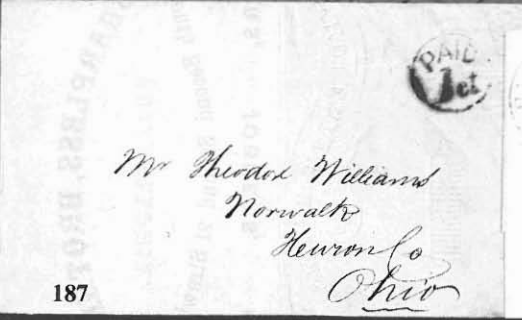 PAID
1ct
Mr Theodore Williams
Norwalk
Heuron Co
Ohio
187